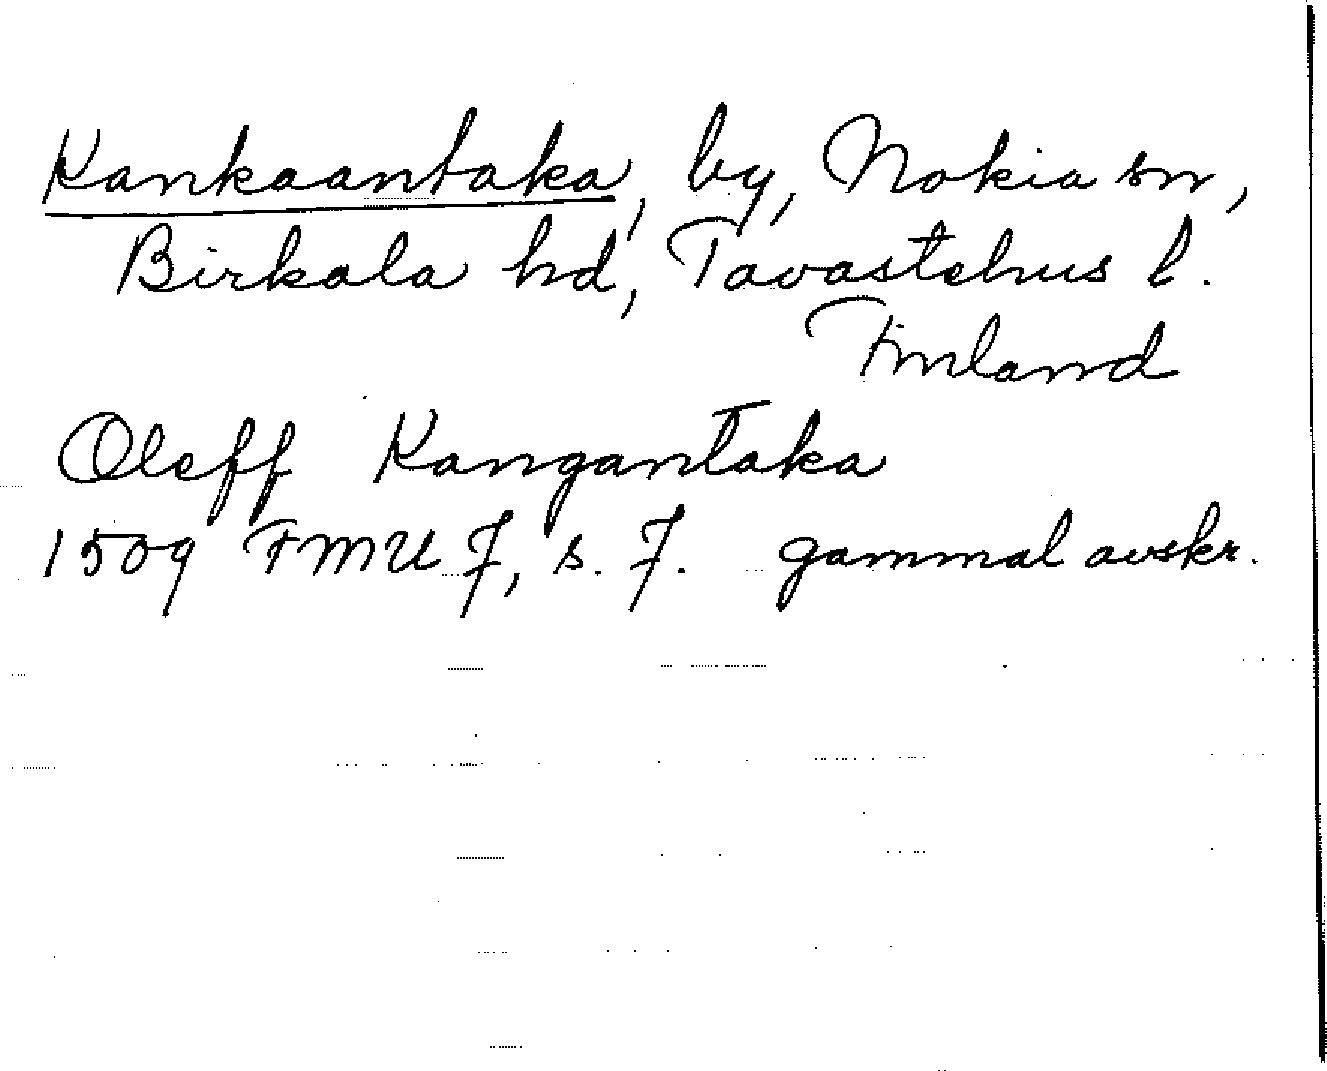 Kankaantaka, by, Nokia sn,
Birkala hd, Tavastehus l.
Finland
Oleff Kangantaka
1509 FMU 7, s. 7. gammal avskr.